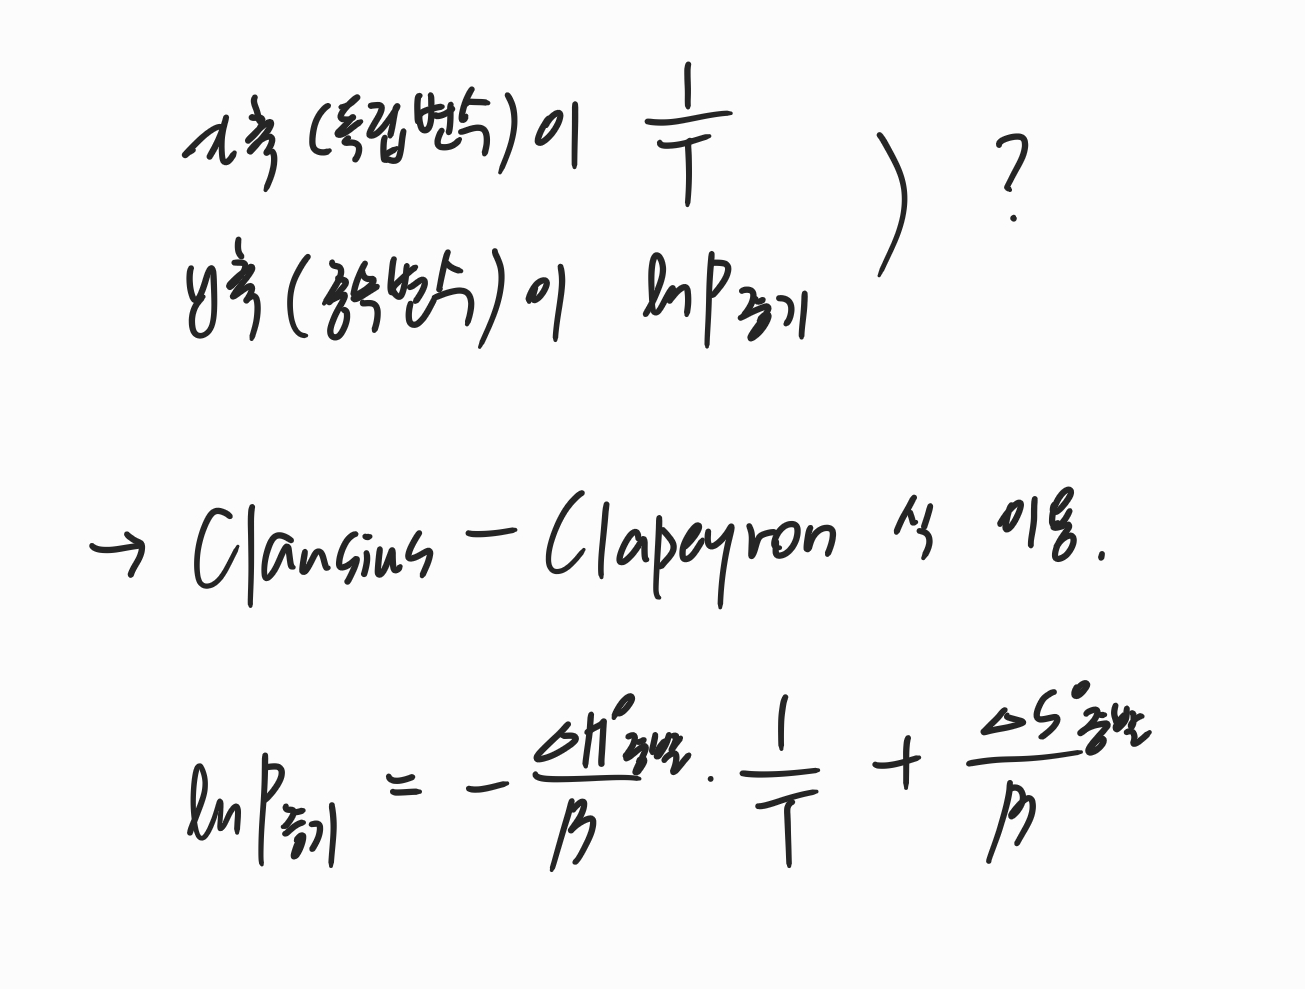 x축 (독립변수)이 1/T
y축 (종속변수)이 ln P증기 ) ?
→ Clausius - Clapeyron 식 이용.
ln P증기 = - ΔH°증발/R · 1/T + ΔS°증발/R